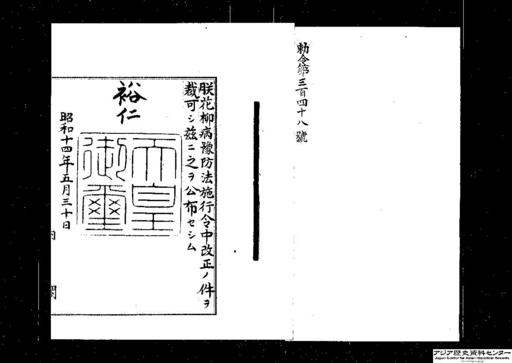 勅令第三百四十八號
朕花柳病豫防法施行令中改正ノ件ヲ
裁可シ茲ニ之ヲ公布セシム
裕仁
天皇御璽
昭和十四年五月三十日
アジア歴史資料センター
Japan Center for Asian Historical Records